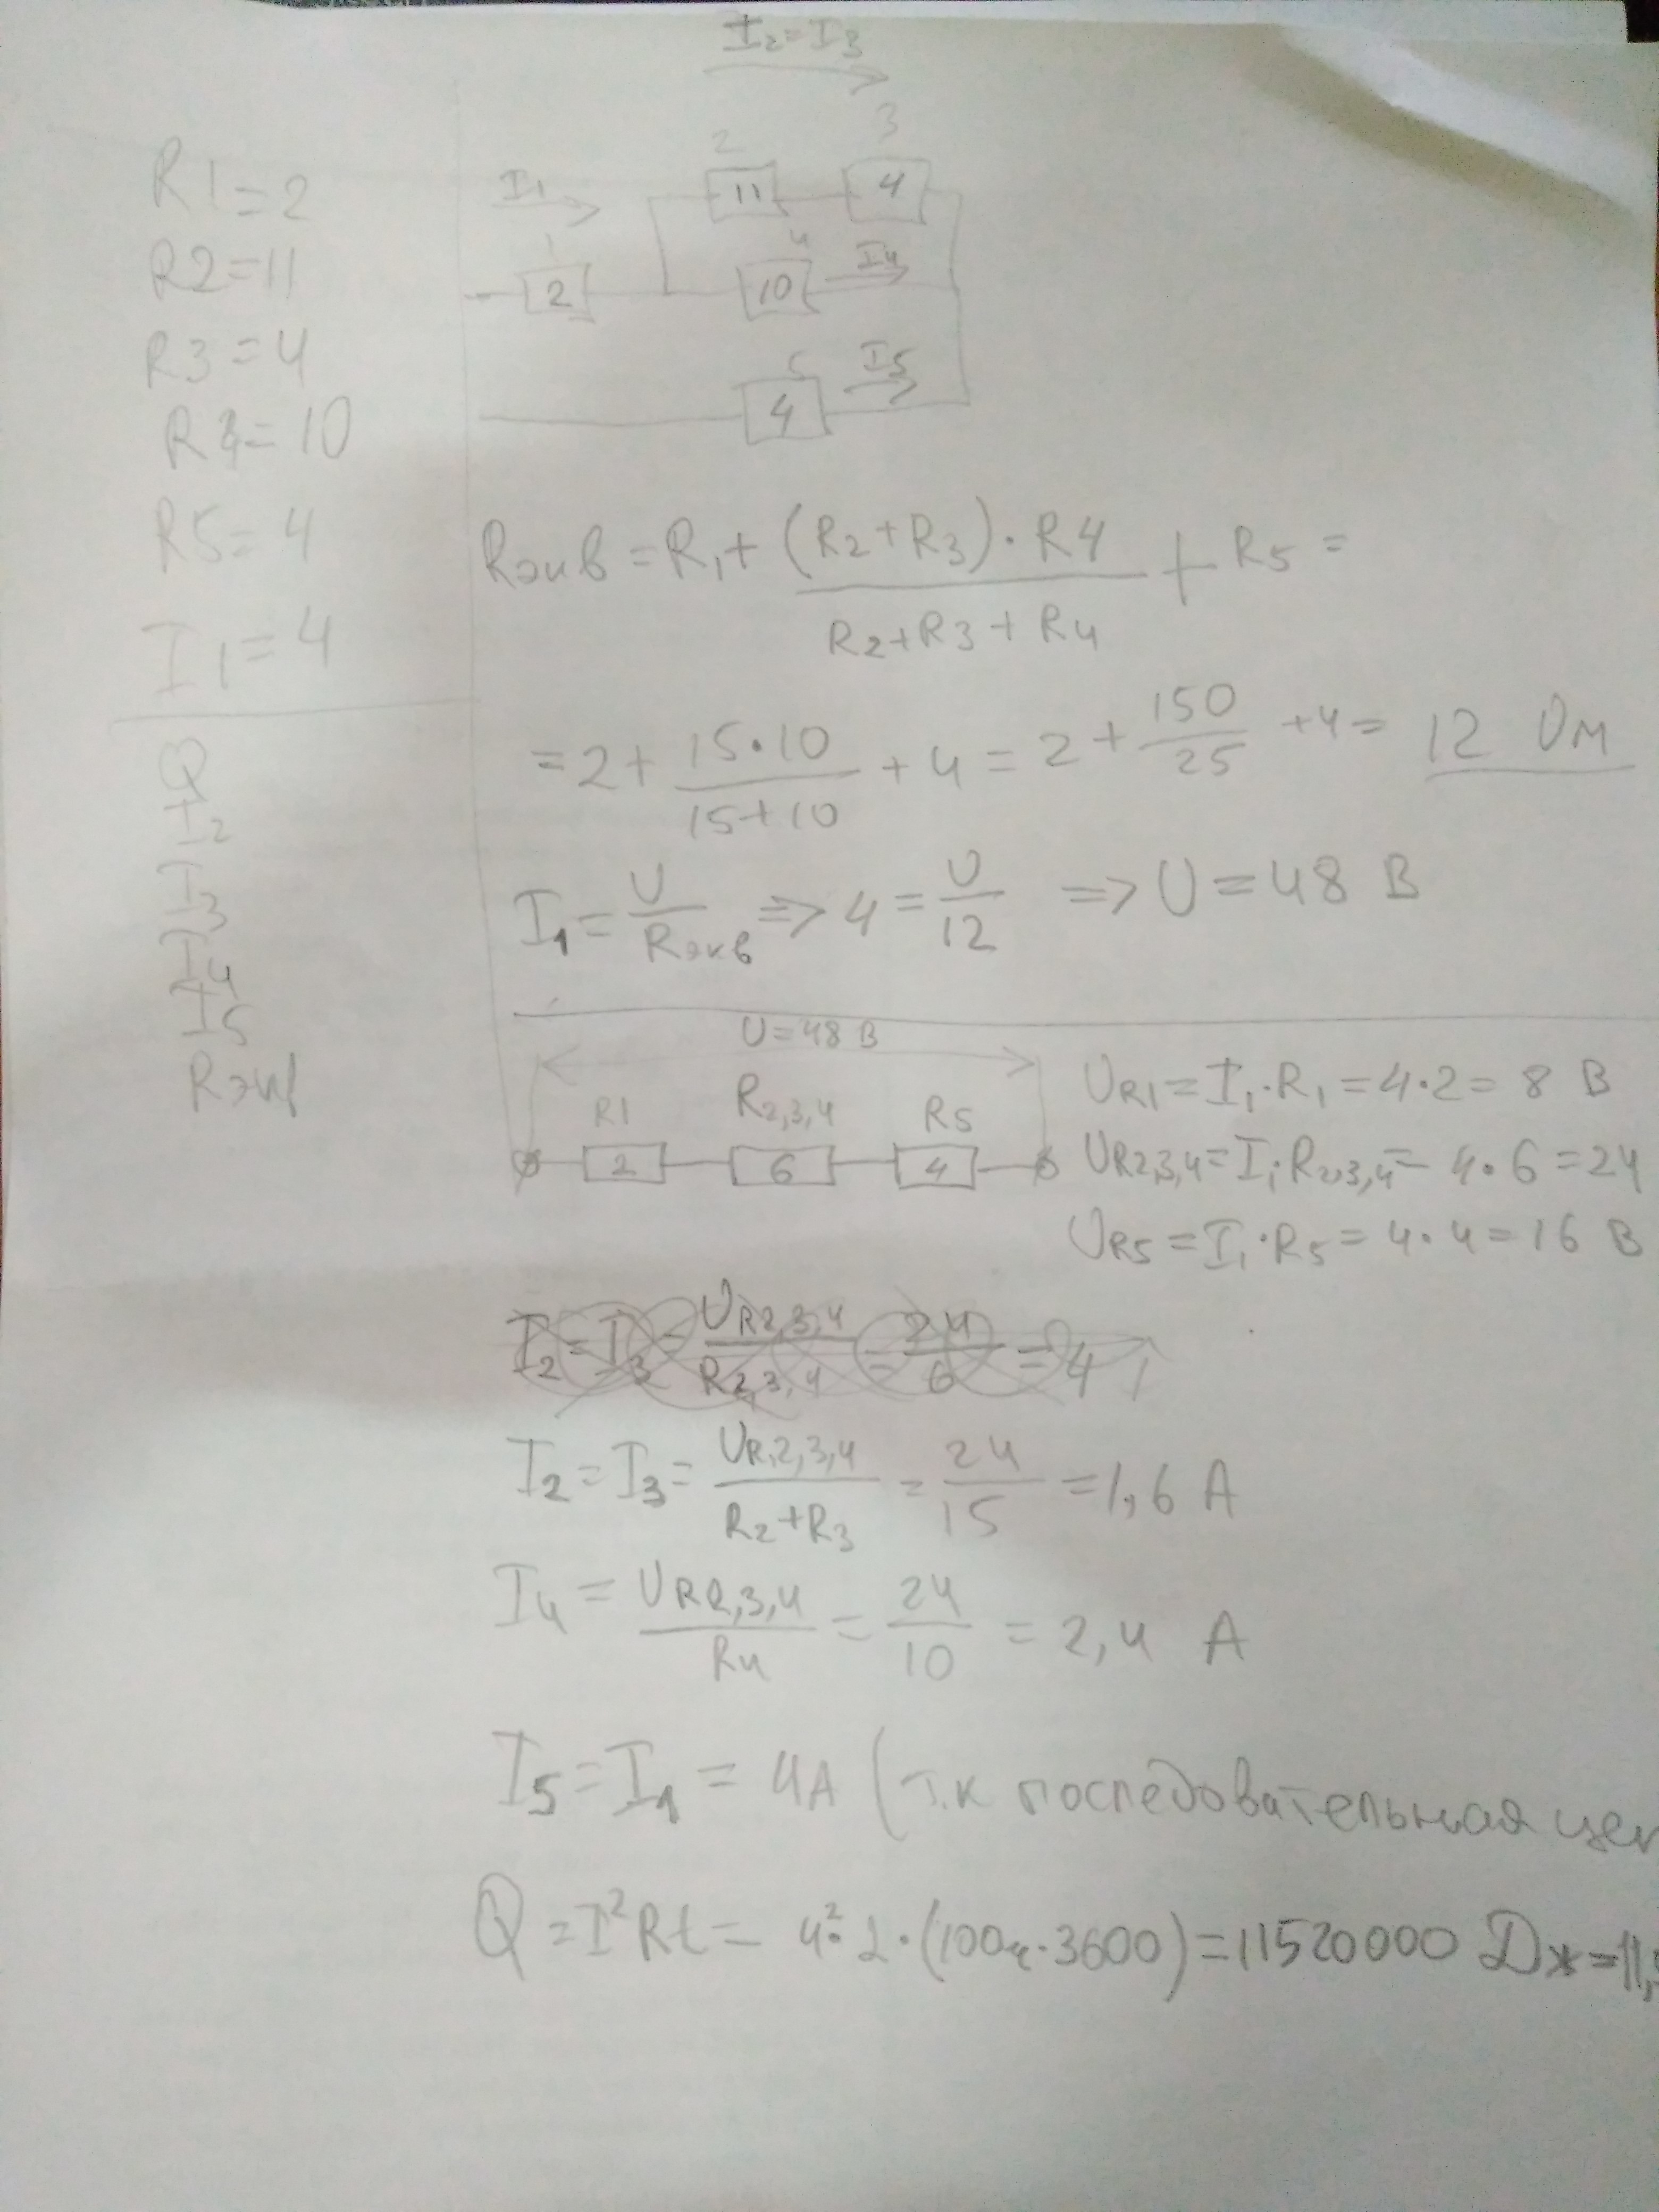 I2=I3
R1=2
R2=11
R3=4
R4=10
R5=4
I1=4
Q
I2
I3
I4
I5
Rэкв
I1
2
3
11
4
1
2
4
10
I4
5
4
I5
Rэкв=R1+(R2+R3)·R4/R2+R3+R4+R5=
=2+15·10/15+10+4=2+150/25+4=12 Ом
I1=U/Rэкв=>4=U/12=>U=48 В
U=48 В
R1 R2,3,4 R5
2 6 4
UR1=I1·R1=4·2=8 В
UR2,3,4=I1·R2,3,4=4·6=24
UR5=I1·R5=4·4=16 В
I2=I3=UR2,3,4/R2,3,4=24/6=4
I2=I3=UR,2,3,4/R2+R3=24/15=1,6 А
I4=UR2,3,4/R4=24/10=2,4 А
I5=I1=4А (т.к последовательная цеп
Q=I²Rt=4²·2·(100ч·3600)=11520000 Дж=11,